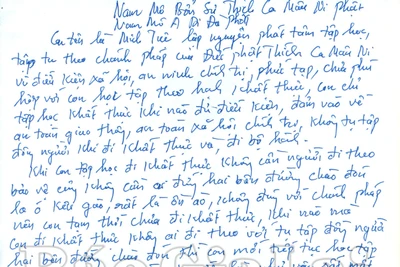 Nam Mô Bổn Sư Thích Ca Mâu Ni phật
Nam Mô A Di Đà Phật
Con tên là Minh Tuệ lập nguyện phát tâm tập học,
tập tu theo chánh pháp của Đức phật Thích Ca Mâu Ni
vì điều kiện xã hội, an ninh chính trị, phức tạp, chưa phù
hợp với con học tập theo hạnh khất thực, con chỉ
tập học khất thực khi nào đủ điều kiện, đảm bảo về
an toàn giao thông, an toàn xã hội chính trị, không tụ tập
đông người khi đi khất thực và, đi bộ hành.
Khi con tập học đi khất thực không cần người đi theo
bảo vệ cũng không cần ai đứng hai bên đường chào đón
la ó kêu gào, rất là ồn ào, không đúng với chánh pháp
nên con tạm thời chưa đi khất thực, khi nào mà
con đi khất thực không ai đi theo với tụ tập đông người
hai bên đường chào đón thì con mới tiếp tục học tập